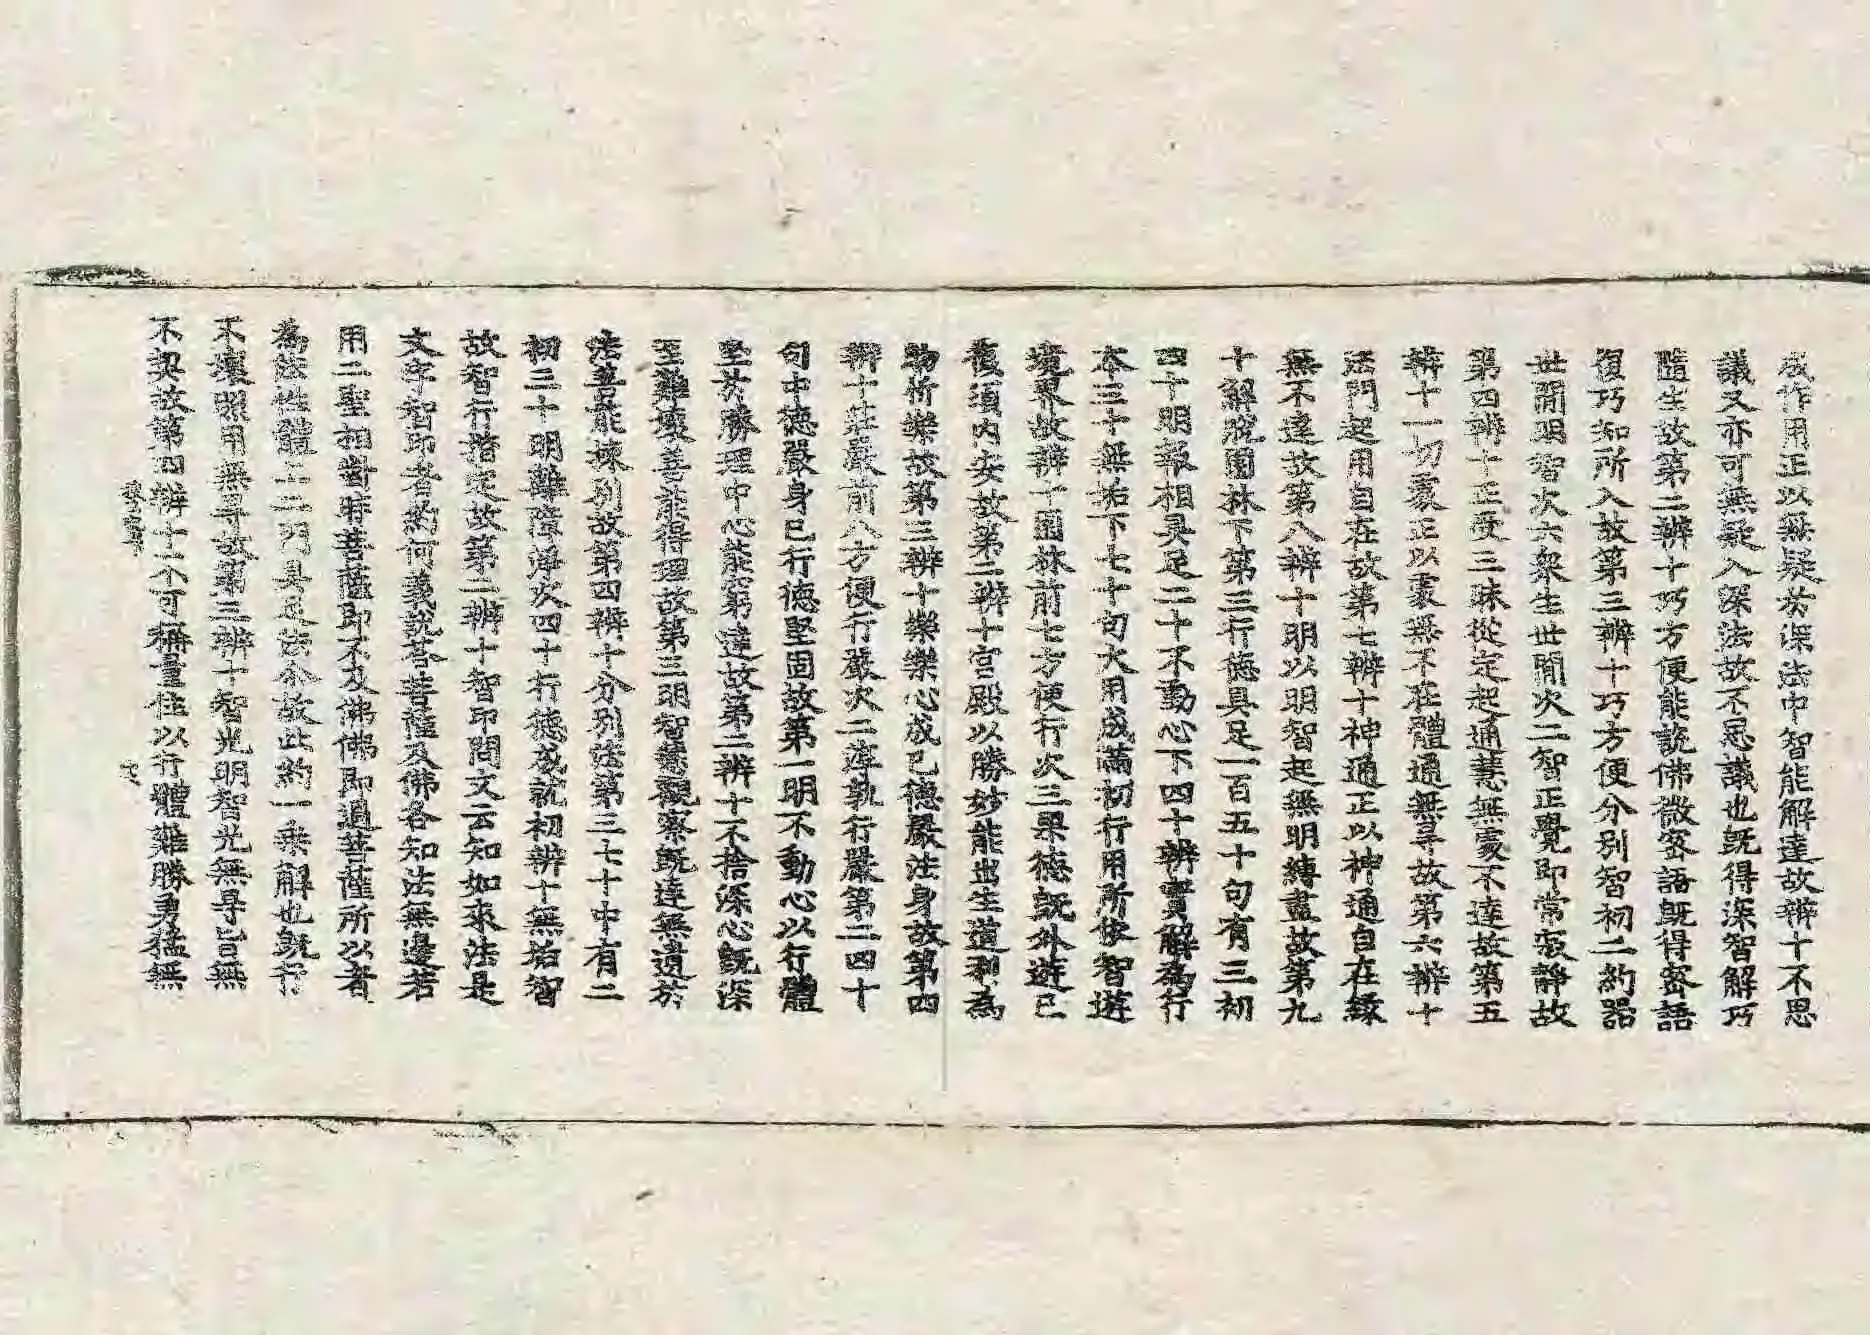 成作用正以無疑於深法中智能解達故辨十不思
議又亦可無疑入深法故不思議也旣得深智解巧
隨生故第二辨十巧方便能說佛微密語旣得密語
復巧知所入故第三辨十巧方便分別智初二約器
世間明智次六衆生世間次二智正覺即常寂靜故
第四辨十正受三昧從定起通慧無處不達故第五
辨十一切處正以處無不在體通無导故第六辨十
法門起用自在故第七辨十神通正以神通自在緣
無不達故第八辨十明以明智起無明縛盡故第九
十解脫園林下第三行德具足一百五十句有三初
四十明報相具足二十不動心下四十辨實解為行
本三十無垢下七十句大用成滿初行用所依智遊
境界故辨十園林前七方便行次三果德旣外遊已
復須內安故第二辨十宮殿以勝妙能出生道利為
物所樂故第三辨十樂樂心成已德嚴法身故第四
辨十莊嚴前八方便行嚴次二軌行嚴第二四十
句中德嚴身已行德堅固故第一明不動心以行體
堅於勝理中心能窮達故第二辨十不捨深心旣深
至難壞善能得理故第三明智慧觀察旣達無遺於
法並善能揀列故第四辨十分別法第三七十中有二
初三十明離障淨次四十行德成就初辨十無垢智
故智行揩定故第二辨十智印問文云知如來法是
文字智印者約何義說荅菩薩及佛各知法無邊若
用二聖相對時菩薩即不及佛佛即過菩薩所以者
為緣性體上二門具足法介故此約一乘解也旣行
不壞照用無导故第三辨十智光明智光無导旨無
不契故第四辨十不可稱量住以行體難勝勇猛無